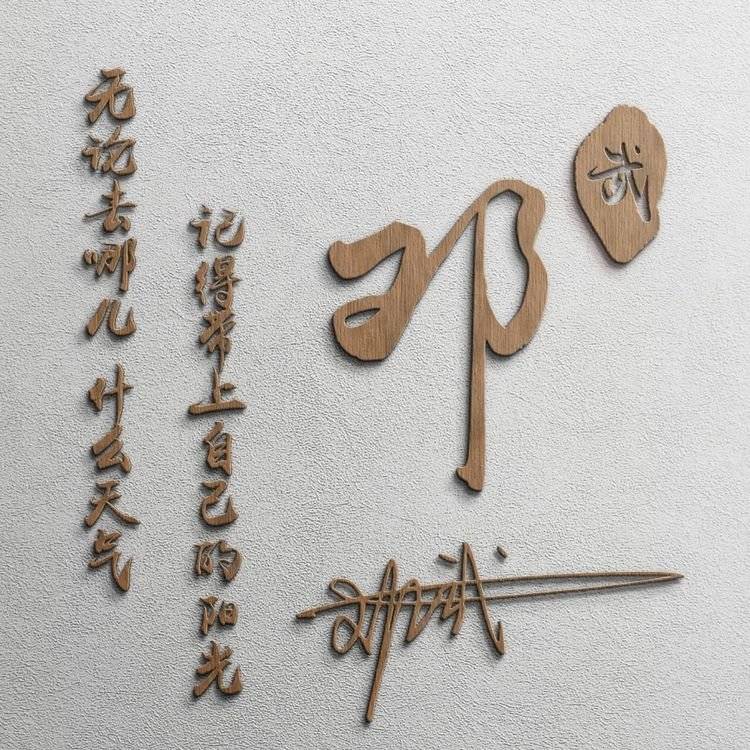 无论去哪儿 什么天气
记得带上自己的阳光
邓
武